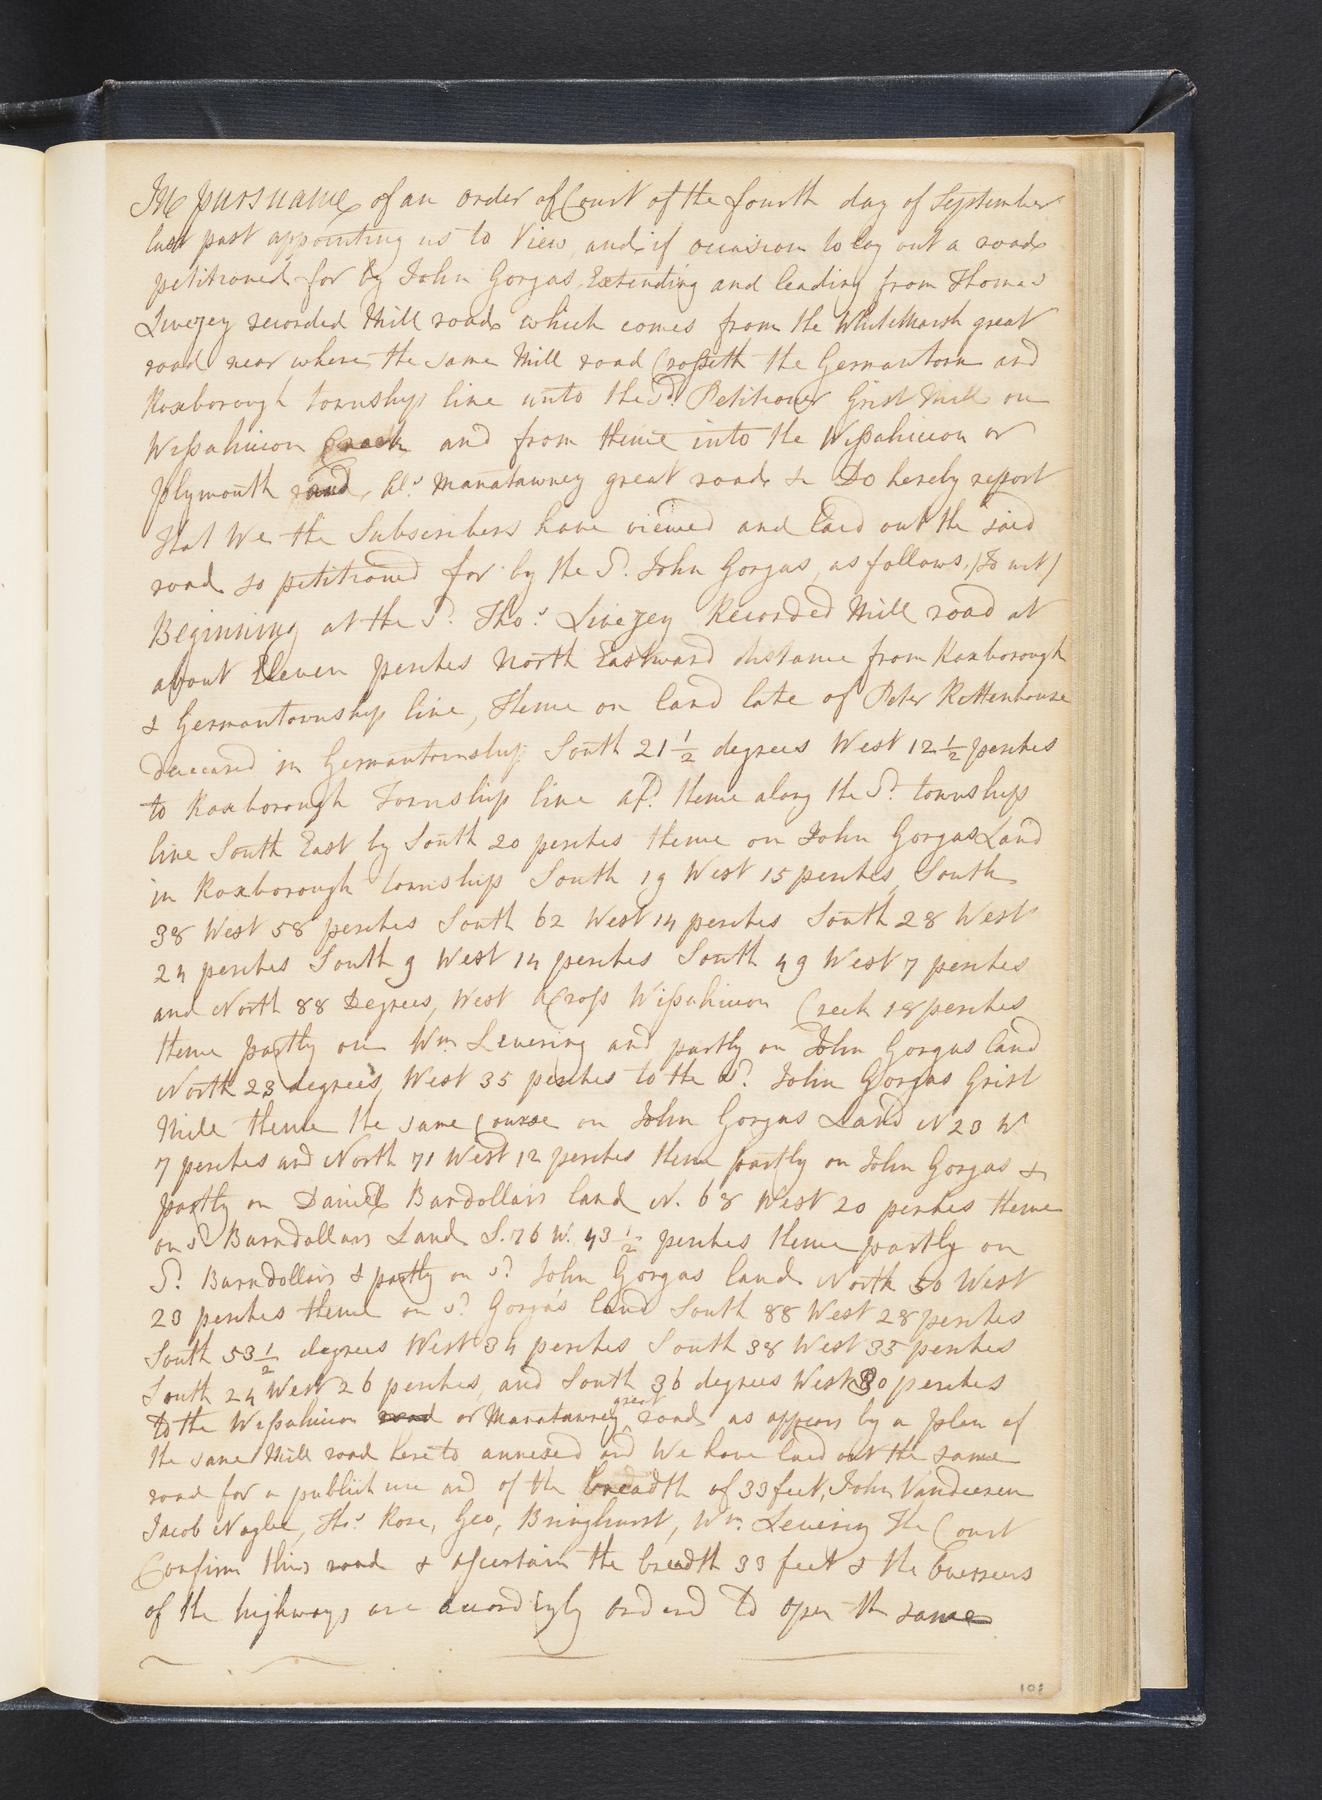 In pursuance of an order of Court of the fourth day of September
last past appointing us to View, and if occasion to lay out a road
petitioned for by John Gorgas, Extending and leading from Thomas
Livezey recorded Mill road which comes from the Whitemarsh great
road near where the same Mill road Crosseth the Germantown and
Roxborough township line unto the Sd. Petitioner Grist Mill on
Wissahiccon Creek and from thence into the Wissahiccon or
plymouth road, Als. Manatawney great road &c Do hereby report
That We the Subscribers have viewed and laid out the said
road so petitioned for by the Sd. John Gorgas, as follows, (To wit)
Beginning at the Sd. Thos. Livezey Recorded Mill road at
about Eleven perches North Eastward distance from Roxborough
& Germantownship line, Thence on land late of Peter Rittenhouse
deceased in Germantownship South 21 1/2 degrees West 12 1/2 perches
to Roxborough Township line afd. thence along the Sd. township
line South East by South 20 perches thence on John Gorgas Land
in Roxborough township South 19 West 15 perches, South
38 West 58 perches South 62 West 14 perches South 28 West
24 perches South 9 West 14 perches South 49 West 7 perches
and North 88 Degrees, West aCross Wissahiccon Creek 18 perches
thence partly on Wm. Levering and partly on John Gorgas land
North 23 degrees, West 35 perches to the sd. John Gorgas Grist
Mill thence the same Course on John Gorgas Land N 23 W
7 perches and North 71 West 12 perches thence partly on John Gorgas &
partly on Daniel Bardollars land N. 68 West 20 perches thence
on sd Barndollars Land S. 76 W. 43 1/2 perches thence partly on
Sd. Barndollars & partly on sd. John Gorgas land North 50 West
23 perches thence on sd. Gorgas land South 88 West 28 perches
South 53 1/2 degrees West 34 perches South 38 West 33 perches
South 24 West 26 perches, and South 36 degrees West 30 perches
to the Wissahiccon road or Manatawney great road as appears by a plan of
the same Mill road hereto annexed and We have laid out the same
road for a publick use and of the breadth of 33 feet, John Vandeeren
Jacob Nagle, Thos. Rose, Geo, Bringhurst, Wm. Levering The Court
Confirm this road & ascertain the breadth 33 feet & the Overseers
of the highways are accordingly ordered to open the same